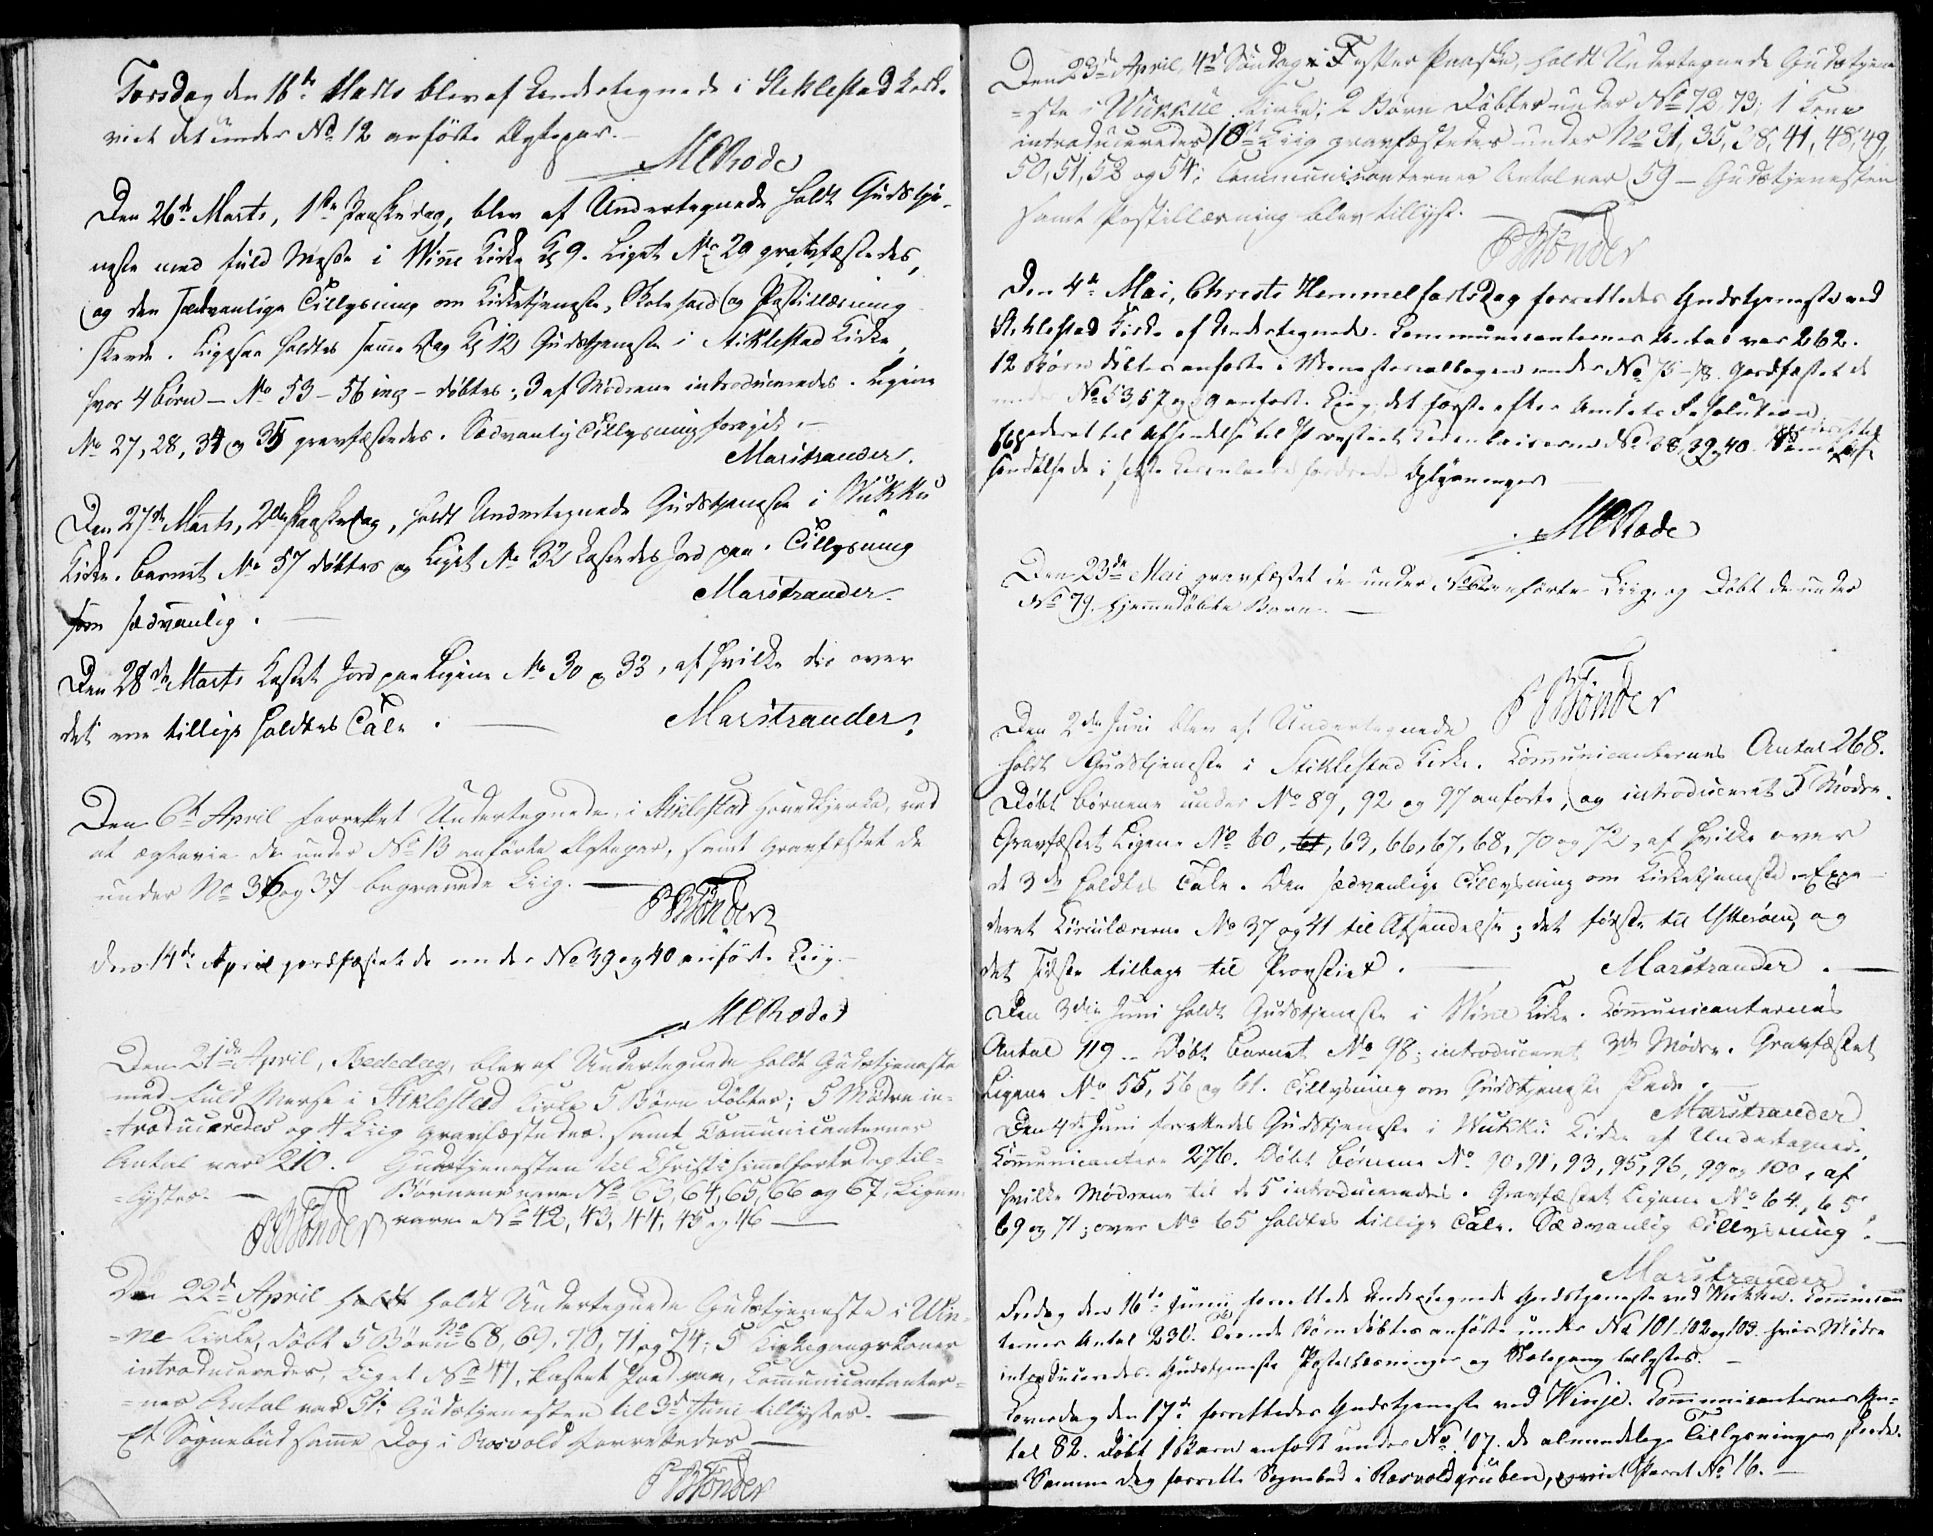 Torsdag den 16de Marts blev af Undertegnede i Stiklestad Kirke
viet det under No 12 anførte Ægtepar.
M C Rode
Den 26de Marts, 1ste Paaskedag, blev af Undertegnede holdt Gudstje-
neste med fuld Messe i Winne Kirke Kl 9. Liget No 29 gravfæstedes,
og den sædvanlige Tillysning om Kirketjeneste, Skolehold og Postillæsning
skeede. Ligesaa holdtes samme Dag Kl 12 Gudstjeneste i Stiklestad Kirke,
hvor 4 børn - No 53 - 56 incl - døbtes; 3 af Mødrene introduceredes. Ligene
No 27, 28, 34 og 35 gravfæstedes. Sædvanlig Tillysning foregik.
Marstrander.
Den 27de Marts, 2den Paaskedag, holdt Undertegnede Gudstjeneste i Wukku
Kirke. Barnet No 57 døbtes og Liget No 32 kastedes Jord paa. Tillysning
som sædvanlig.
Marstrander.
Den 28de Marts kastet Jord paa Ligene No 30 og 33, af hvilke der over
det ene tillige holdtes Tale.
Marstrander.
Den 6te April forrettet Undertegnede, i Stiklestad Hovedkirke, ved
at ægtevie de under No 13 anførte Ægtepar, samt gravfæstet de
under No 36 og 37 begravede Liig.
P B Tønder
den 14de April jordfæstet de under No 39 og 40 anførte Liig.
M C Rode
Den 21de April, Bededag, blev af Undertegnede holdt Gudstjeneste
med fuld Messe i Stiklestad Kirke 5 Børn døbtes; 5 Mødre in-
troduceredes og 4 Liig gravfæstedes. samt Communicanternes
Antal var 210. Gudstjenesten til Christi Himmelfartsdag til-
lystes. Børnene vare No 63, 64, 65, 66 og 67, Ligene
vare No 42, 43, 44, 45 og 46
P B Tønder
Den 22de April holdt holdt Undertegnede Gudstjeneste i Win-
ne Kirke, døbt 5 Børn No 68, 69, 70, 71 og 74; 5 Kirkegangskoner
introduceredes, Liget No 47, kastet Jord paa, Communicanter-
nes Antal var 51; Gudstjenesten til 3de Juni tillystes.
Et Sognebud samme Dag i Rosvold forrettedes
P B Tønder
Den 23de April, 4de Søndag efter Paaske, holdt Undertegnede Gudstjene-
ste i Wukkue Kirke; 2 Børn døbtes under No 72, 73; 1 Kone
introduceredes 10 Liig gravfæstedes under No 31, 35, 38, 41, 48, 49,
50, 51, 52 og 54; Communicanternes Antal var 59 - Gudstjenesten
samt Postillæsning blev tillyst.
P B Tønder
Den 4de Mai, Christi Hemmelfartsdag forrettedes Gudstjeneste ved
Stiklestad Kirke af Undertegnede. Communicanternes Antal var 262.
12 Børn døbtes anførte i Ministerialbogen under No 75-78. Jordfæstet de
under No 53, 57 og 59 anførte Liig, det første efter Amtets Resolution
til Afsendelse til Provstiet Circulairerne No 38, 39, 40.
Oplysninger
M C Rode
Den 23de Mai gravfæstet de under No 62 anførte Liig, og døbt de under
No 79. hjemmedøbte Barn.
P B Tønder
Den 2den Juni blev af Undertegnede
holdt Gudstjeneste i Stiklestad Kirke. Communicanternes Antal 268.
Døbt børnene under No 89, 92 og 97 anførte, og introduceret 5 Mødre.
Gravfæstet Ligene No 60, 61, 63, 66, 67, 68, 70 og 72, af hvilke over
de 3de holdtes Tale. Den sædvanlige Tillysning om Kirketjeneste. Expe-
deret Circulærerne No 37 og 41 til Afsendelse; det første til Ytterøen, og
det sidste tilbage til Provstiet.
Marstrander.
Den 3die Juni holdt Gudstjeneste i Winne Kirke. Communicanternes
Antal 119. Døbt barnet No 98; introduceret 3de Mødre. Gravfæstet
Ligene No 55, 56 og 61. Tillysning om Gudstjeneste skede.
Marstrander
Den 4de Juni forrettedes Gudstjeneste i Wukku Kirke af Undertegnede.
Communicantere 276. Døbt børnene No 90, 91, 93, 95, 96, 99 og 100, af
hvilke Mødrene til de 5 introduceredes. Gravfæstet Ligene No 64, 65,
69 og 71; over No 65 holdtes tillige Tale. Sædvanlig Tillysning.
Marstrander
Fredag den 16de Junii forrettede Undertegnede Gudstjeneste ved Wukku. Communican-
ternes Antal 230. Trende Børn døbtes anførte under No 101. 102 og 103. hvis Mødre
introduceredes. Gudstjeneste Postillæsninger og Skolegang tillystes.
Løverdag den 17de forrettedes Gudstjeneste ved Winje. Communicanternes An-
tal 82. døbt 1 Barn anført under No 107. de almindelige Tillysninger skede.
Samme dag forrettet Sognebud i Rosvoldgruben, og viet Parret No 16.